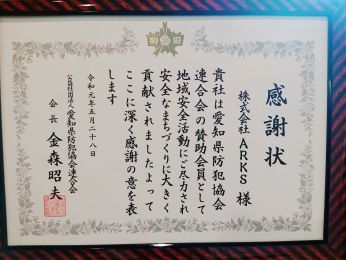 防犯
感謝状
株式会社 ARKS 様
貴社は愛知県防犯協会
連合会の賛助会員として
地域安全活動にご尽力され
安全なまちづくりに大きく
貢献されましたよって
ここに深く感謝の意を表
します
令和元年五月二十八日
公益社団法人 愛知県防犯協会連合会
会長 金森昭夫